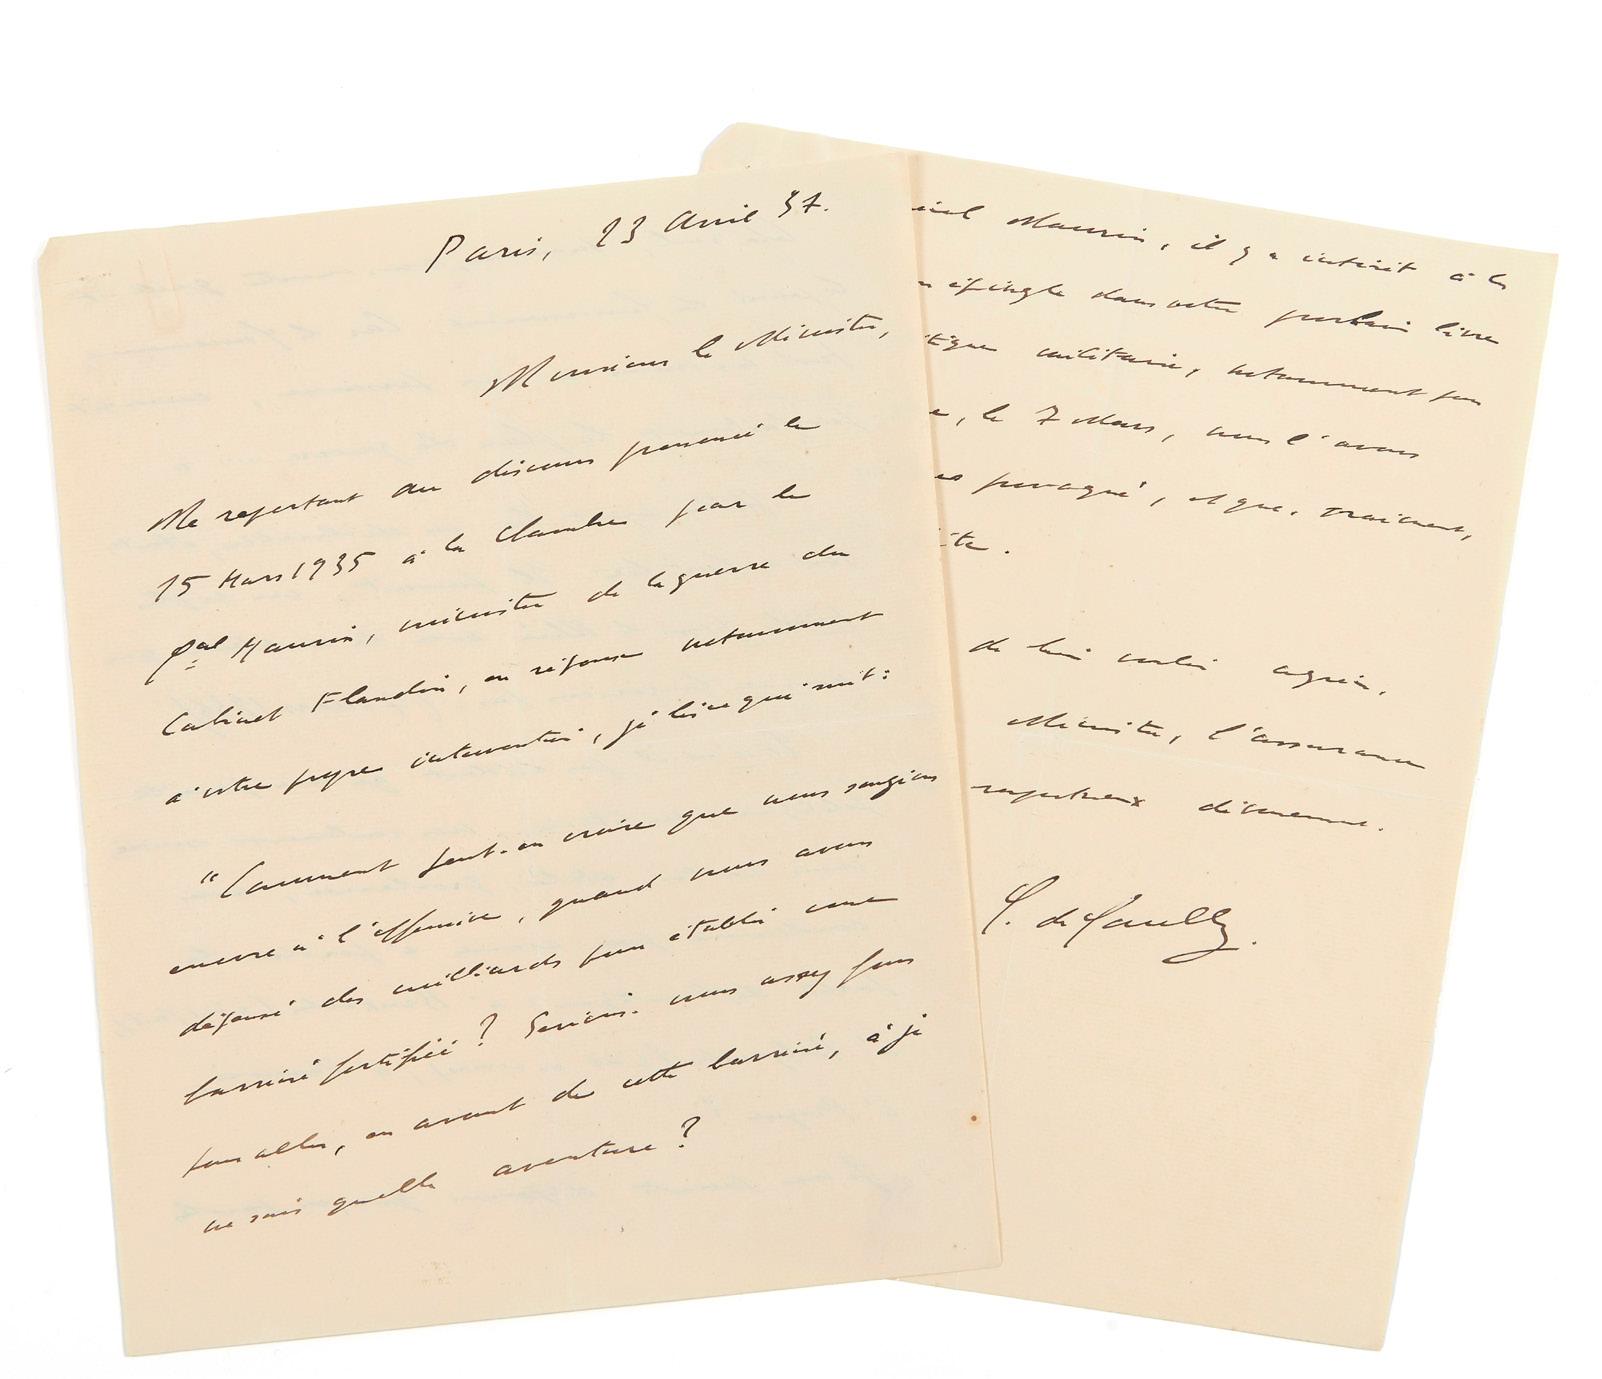 Paris, 23 Avril 37.
Monsieur le Ministre,
Me reportant au discours prononcé le
15 Mars 1935 à la Chambre par le
Gal Maurin, ministre de la guerre du
Cabinet Flandin, en réponse notamment
à votre propre intervention, j'ai lu ce qui suit :
"Comment peut-on croire que nous songions
encore à l'offensive, quand nous avons
dépensé des milliards pour établir une
barrière fortifiée ? Serions-nous assez fous
pour aller, en avant de cette barrière, à je
ne sais quelle aventure ?
Maurin, il y a intérêt à les
épingle dans votre prochain livre
militaire, notamment pour
, le 7 Mars, nous l'avons
provoqué, et que, vraiment,
de bien vouloir agréer,
Ministre, l'assurance
respectueux dévouement.
C. de Gaulle.